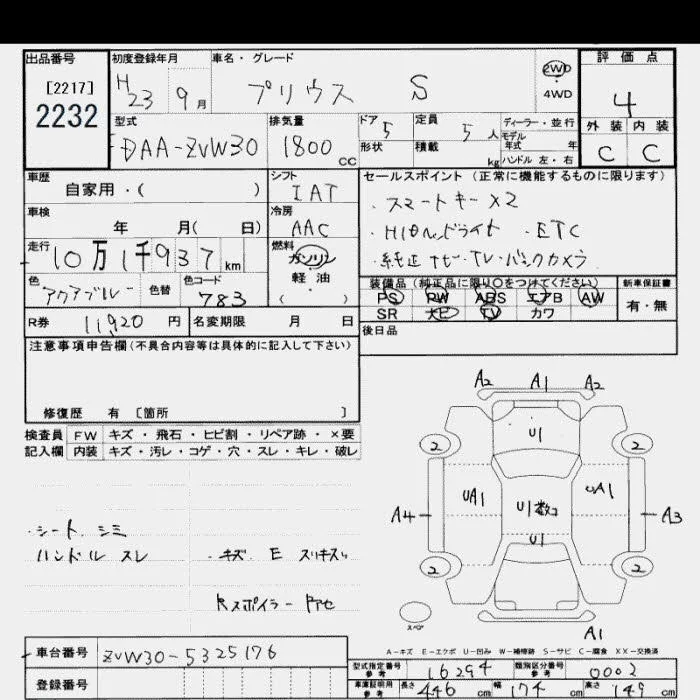 出品番号 初度登録年月 車名・グレード 評価点
[2217] H 23 9月 プリウス S 2WD 4
2232 4WD
型式 排気量 ドア 定員 ディーラー・並行 外装 内装
DAA-ZVW30 1800 CC 5 5人 モデル年式 年 C C
形状 積載 kg ハンドル 左・右
車歴 シフト セールスポイント (正常に機能するものに限ります)
自家用・( ) IAT ・スマートキーX2
車検 冷房 ・HIDヘッドライト ・ETC
年 月( 日) AAC ・純正ナビ・TV・バックカメラ
走行 燃料
10万1千937km ガソリン・軽油 ( )
色 色替 色コード 装備品 (純正品に限り○をつけてください) 新車保証書
アクアブルー 783 PS PW ABS エアB AW 有・無
R券 名変期限 SR ナビ TV カワ
11,920円 月 日 後日品
注意事項申告欄(不具合内容等は具体的に記入して下さい)
修復歴 有 [箇所 ]
検査員 FW キズ・飛石・ヒビ割・リペア跡・×要
記入欄 内装 キズ・汚レ・コゲ・穴・スレ・キレ・破レ
A2 A1 A2
2 U1 2
UA1 UA1
A4 U1数コ A3
U1
2 2
スペア
A1
・シート シミ
ハンドル スレ ・キズ E スリキズ
Rスポイラー
A-キズ E-エクボ U-凹み W-補修跡 S-サビ C-腐食 XX-交換済
車台番号 ZVW30-5325176 型式指定番号参考 16294 類別区分番号参考 0002
登録番号 車庫証明用参考 長さ 446cm 幅 174cm 高さ 149cm